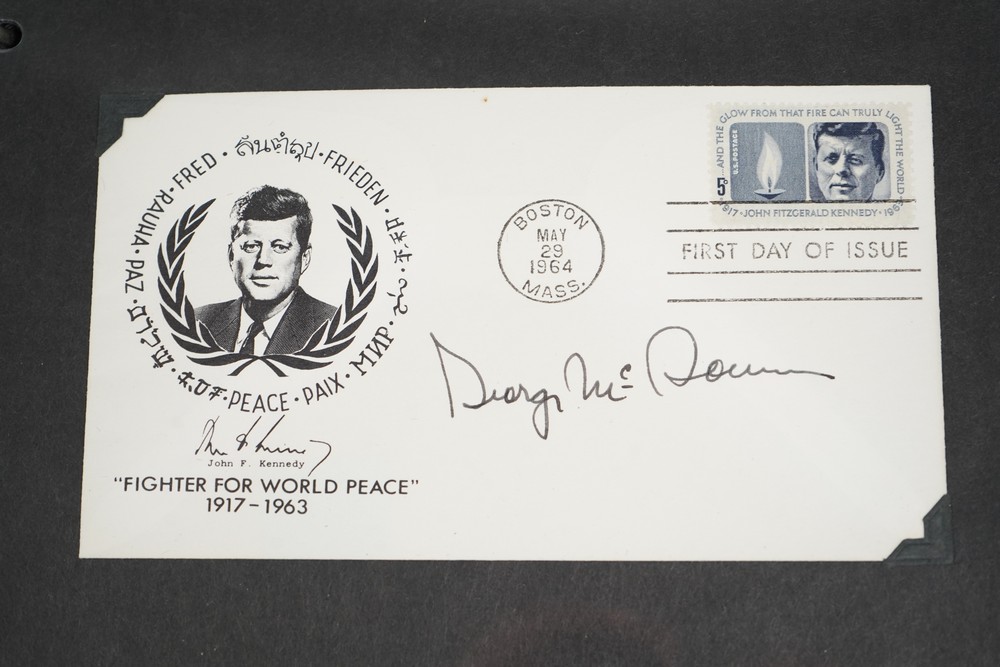 FRED · สันติสุข · FRIEDEN · МИР · PAIX · PEACE · PAZ · RAUHA ·
John F. Kennedy
"FIGHTER FOR WORLD PEACE"
1917-1963
BOSTON
MAY
29
1964
MASS.
...AND THE GLOW FROM THAT FIRE CAN TRULY LIGHT THE WORLD
U.S. POSTAGE
5¢
1917 · JOHN FITZGERALD KENNEDY · 1963
FIRST DAY OF ISSUE
George McGovern